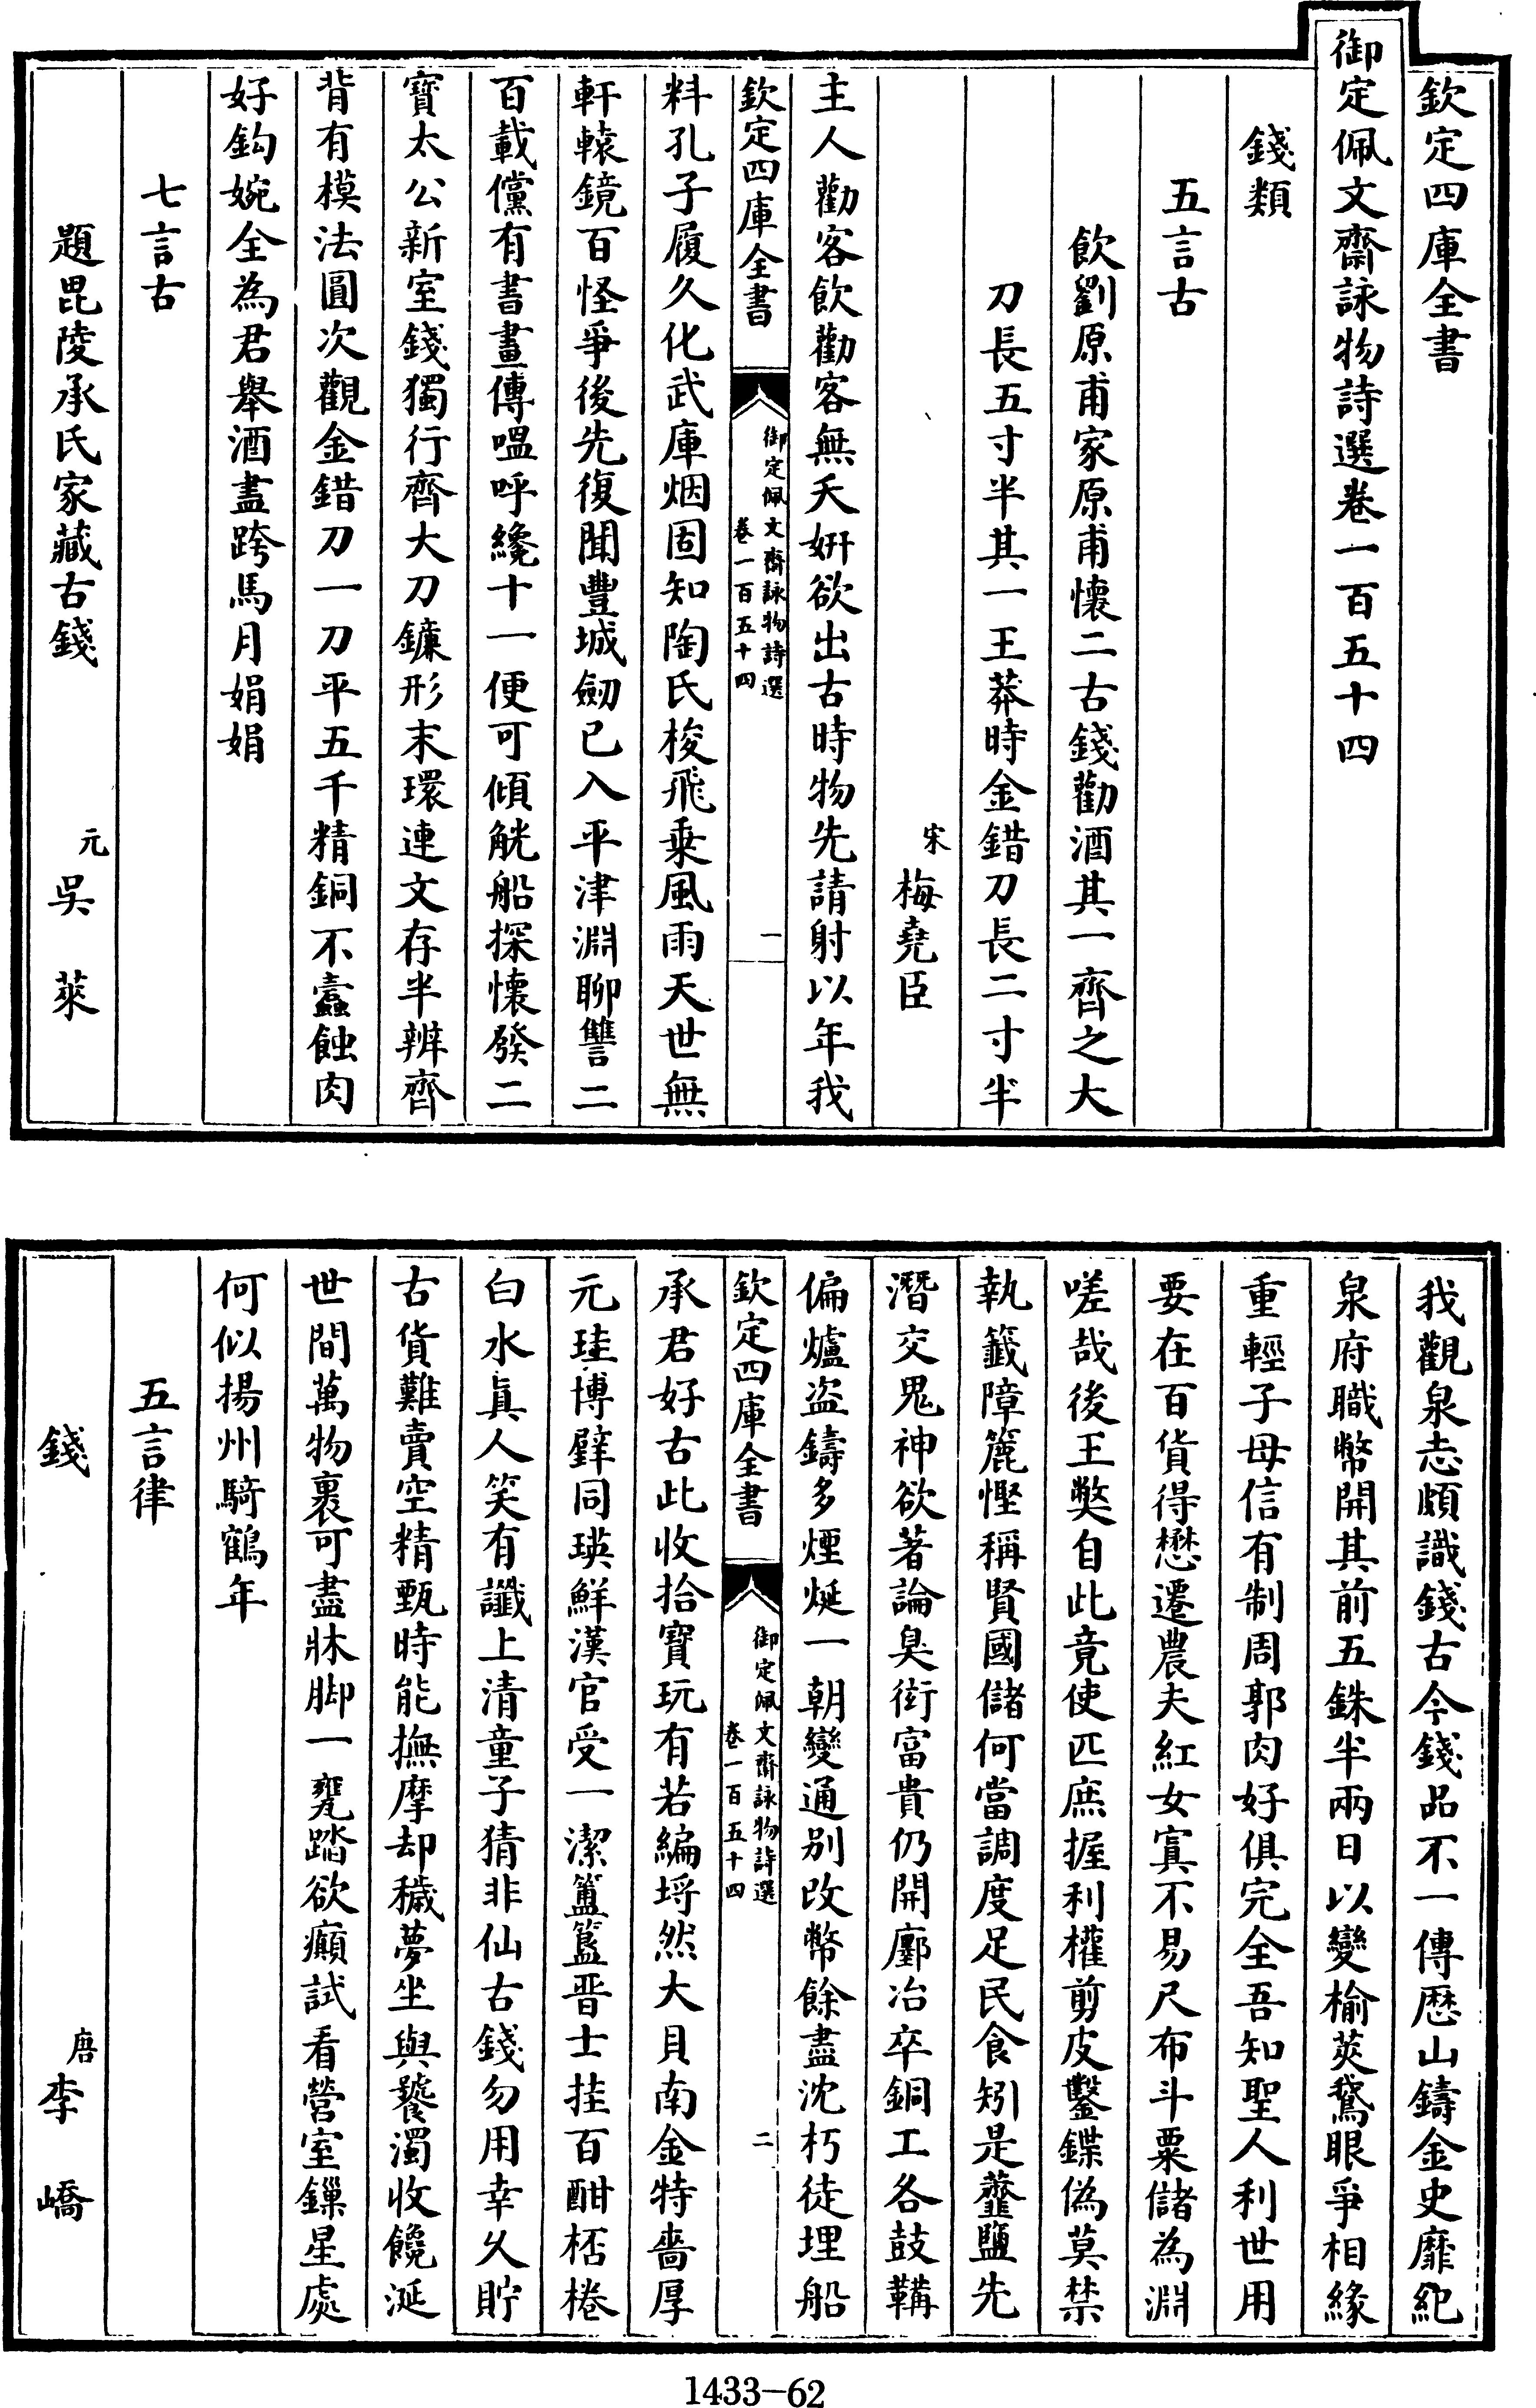 欽定四庫全書
御定佩文齋詠物詩選卷一百五十四
錢類
五言古
飲劉原甫家原甫懷二古錢勸酒其一齊之大
刀長五寸半其一王莽時金錯刀長二寸半
宋 梅堯臣
主人勸客飲勸客無夭妍欲出古時物先請射以年我
欽定四庫全書
御定佩文齋詠物詩選
卷一百五十四
一
料孔子履久化武庫烟固知陶氏梭飛乗風雨天世無
軒轅鏡百怪爭後先復聞豐城劒已入平津淵聊讐二
百載儻有書畫傳嗢呼纔十一便可傾觥船探懷發二
寶太公新室錢獨行齊大刀鐮形末環連文存半辨齊
背有模法圓次觀金錯刀一刀平五千精銅不蠧蝕肉
好鈎婉全為君舉酒盡跨馬月娟娟
七言古
題毘陵承氏家藏古錢
元 吳萊
我觀泉志頗識錢古今錢品不一傳歴山鑄金史靡紀
泉府職幣開其前五銖半兩日以變榆莢鵞眼爭相緣
重輕子母信有制周郭肉好俱完全吾知聖人利世用
要在百貨得懋遷農夫紅女寘不易尺布斗粟儲為淵
嗟哉後王獘自此竟使匹庶握利權剪皮鑿鍱偽莫禁
執籤障簏慳稱賢國儲何當調度足民食矧是虀鹽先
潛交鬼神欲著論臭衒富貴仍開鄽冶卒銅工各鼓鞲
偏爐盗鑄多煙烻一朝變通别改幣餘盡沈朽徒埋船
欽定四庫全書
御定佩文齋詠物詩選
卷一百五十四
二
承君好古此收拾寳玩有若編埓然大貝南金特嗇厚
元珪博璧同瑛鮮漢官受一潔簠簋晋士挂百酣桮棬
白水眞人笑有讖上清童子猜非仙古錢勿用幸乆貯
古貨難賣空精甄時能撫摩却穢夢坐與饕濁收饞涎
世間萬物裹可盡牀脚一甕踏欲癲試看營室鏁星處
何似揚州騎鶴年
五言律
錢
唐 李嶠
1433-62